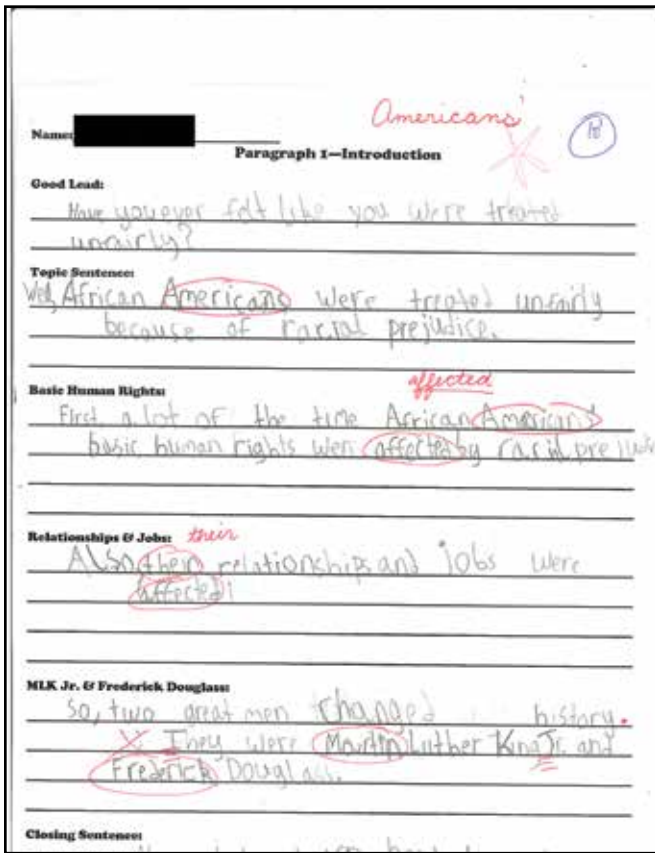 Americans'
Name:
Paragraph 1—Introduction
Good Lead:
Have you ever felt like you were treated
unfairly?
Topic Sentence:
Well, African Americans were treated unfairly
because of racial prejudice.
affected
Basic Human Rights:
First a lot of the time African Americans'
basic human rights wer affected by racial
Relationships & Jobs: their
Also their relationships and jobs were
affected!
MLK Jr. & Frederick Douglass:
So, two great men changed history.
They were Martin Luther King Jr. and
Frederick Douglass.
Closing Sentence: